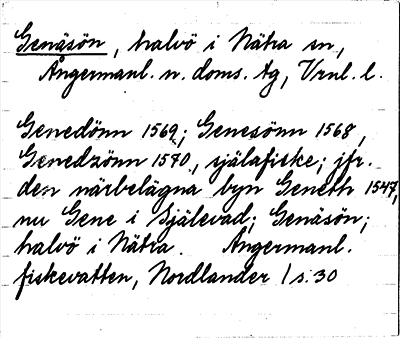 Genäsön, halvö i Nätra sn,
Ångermanl. n. doms. tg, Vrnl. l.
Genedönn 1569; Genesönn 1568,
Genedzönn 1570, själafiske; jfr.
den närbelägna byn Geneth 1547,
nu Gene i Själevad; Genäsön;
halvö i Nätra. Ångermanl.
fiskevatten, Nordlander / s. 30